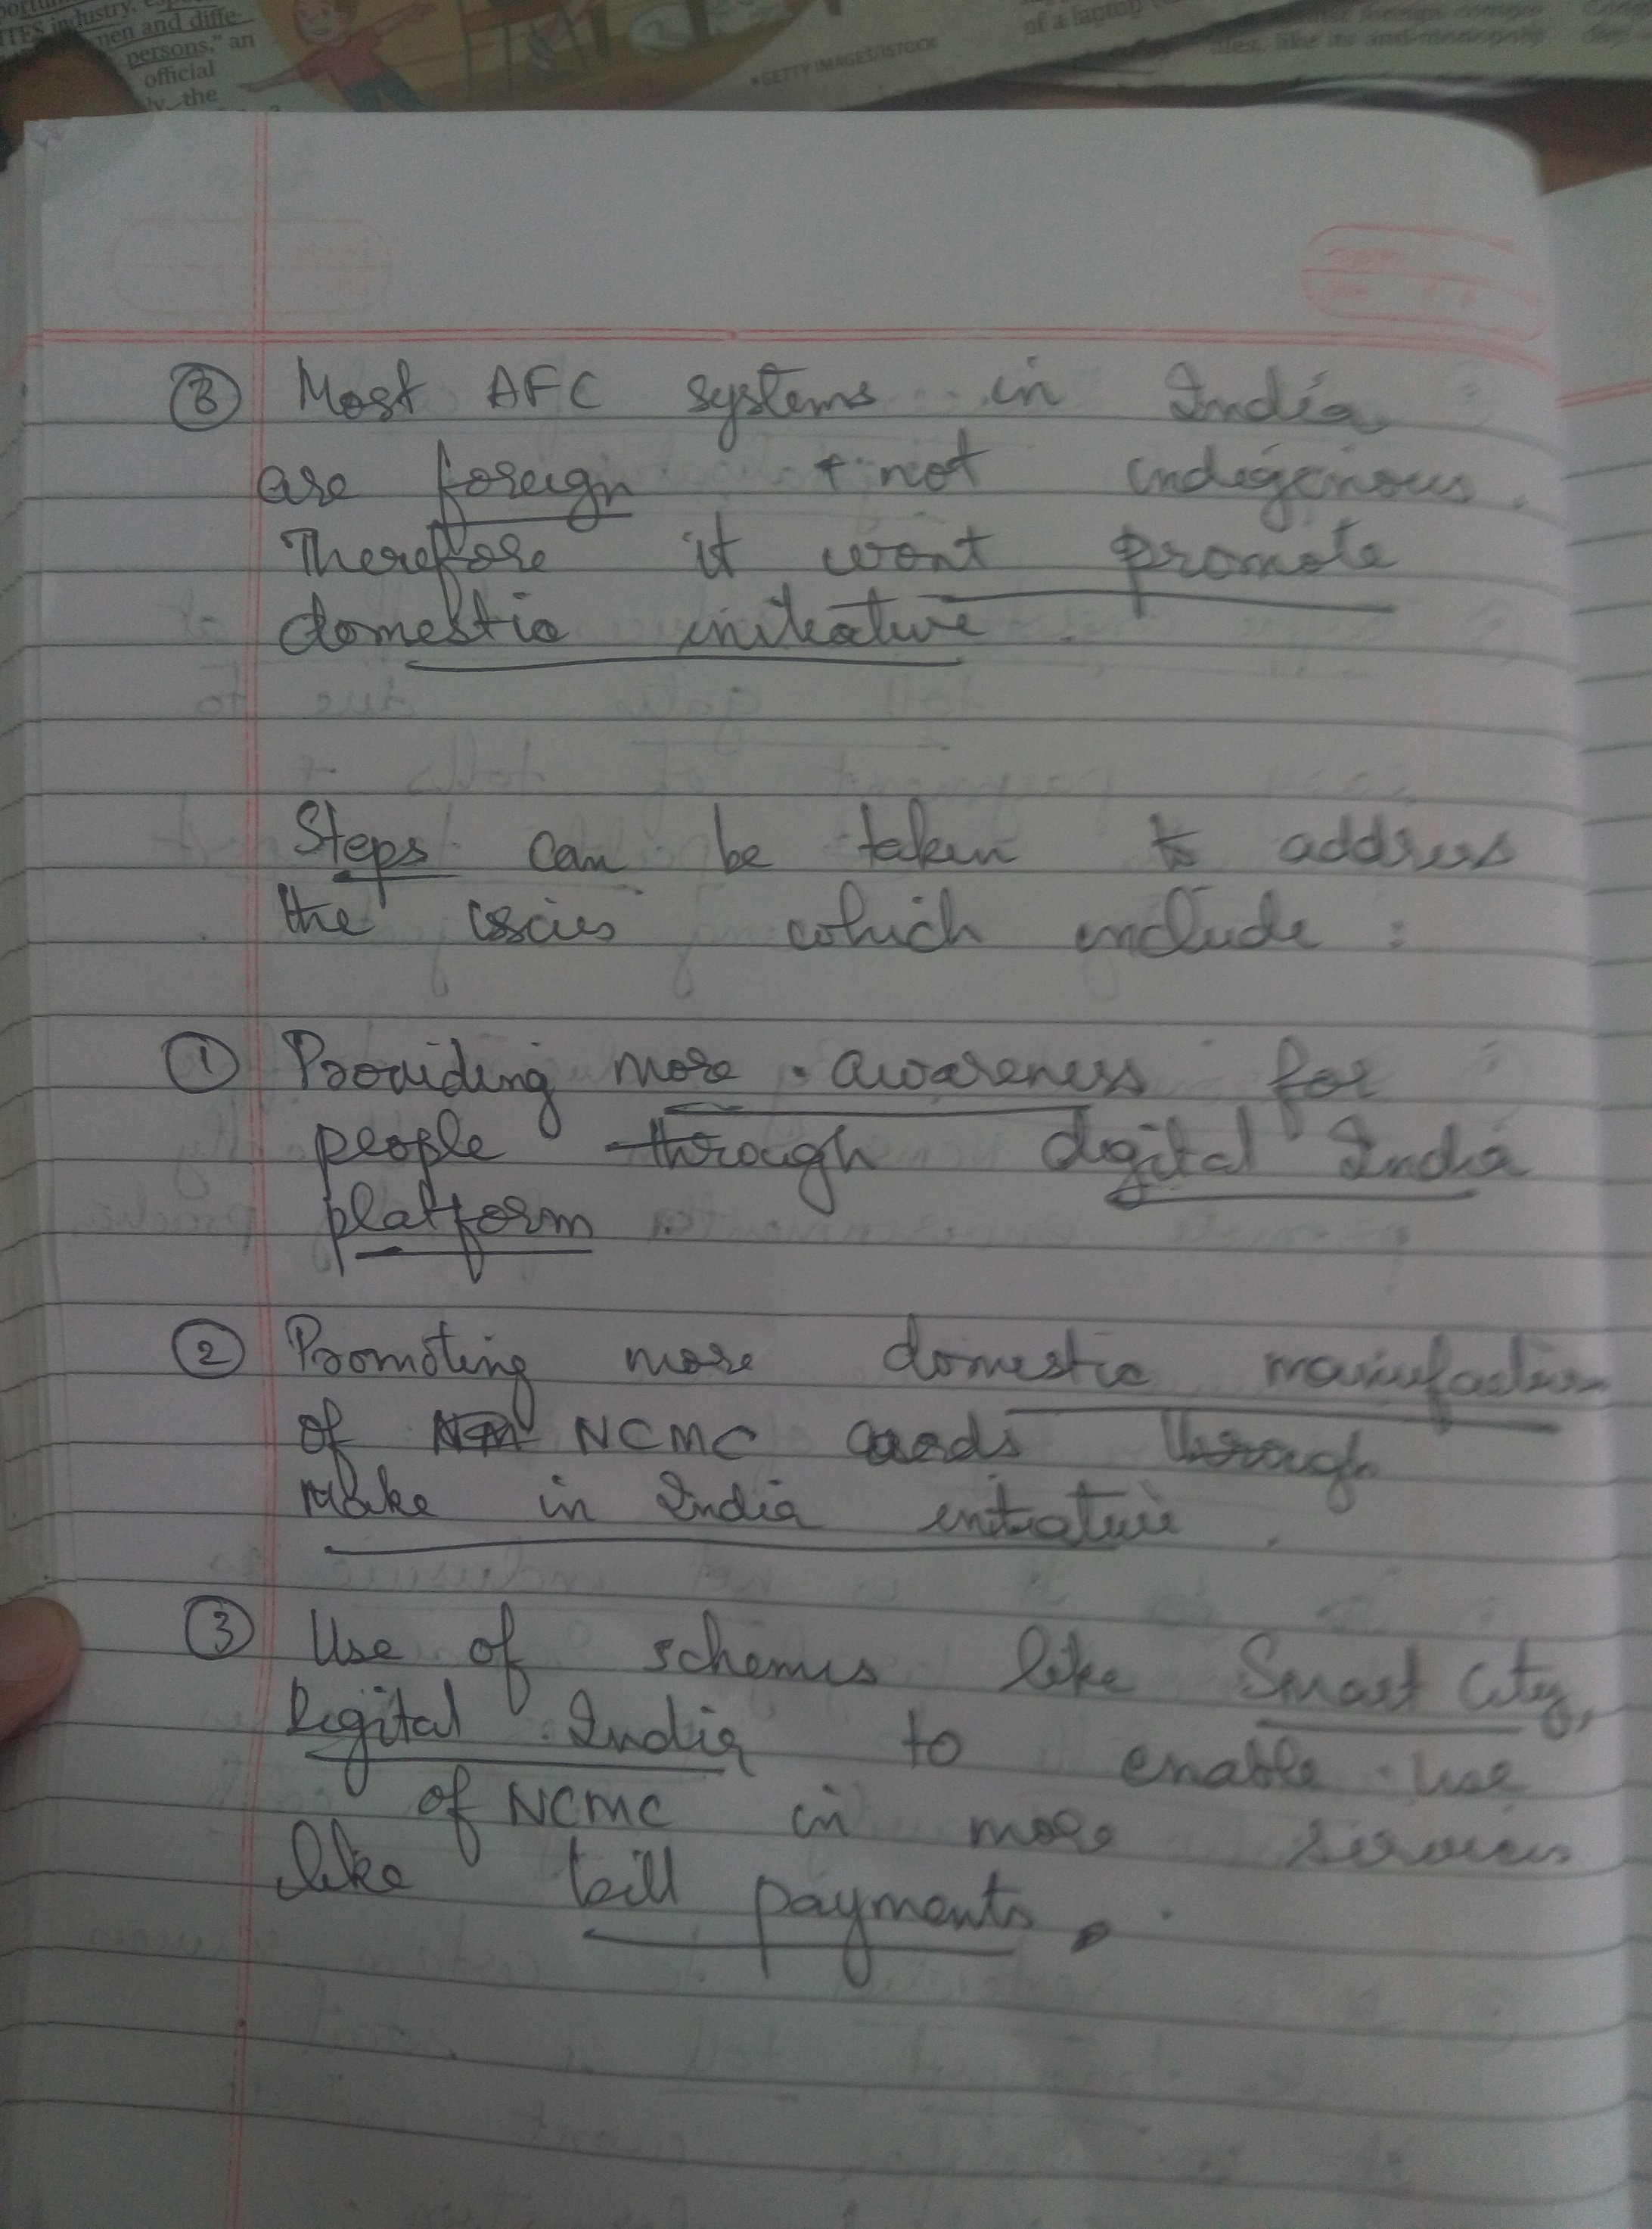 portu
ITES industry, esp
men and diffe-
persons," an
official
ly, the
•GETTY IMAGES/ISTOCK
of a laptop
③ Most AFC systems in India
are foreign + not indigenous.
Therefore it wont promote
domestic initiative.
Steps can be taken to address
the issues which include :
① Providing more awareness for
people through digital India
platform
② Promoting more domestic manufacture
of NCMC cards through
Make in India initiative.
③ Use of schemes like Smart City,
Digital India to enable use
of NCMC in more services
like bill payments.